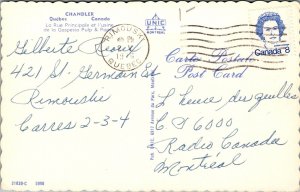 CHANDLER
Québec Canada
La Rue Principale et l'usine
de la Gaspesia Pulp & Paper
UNIC
MONTREAL
RIMOUSKI
QUÉBEC
Canada 8
Carte Postale
Post Card
Gilberte Sirois
421 St. Germain Est
Rimouski
Carres 2-3-4
L'heure des quilles
C P 6000
Radio Canada
Montréal